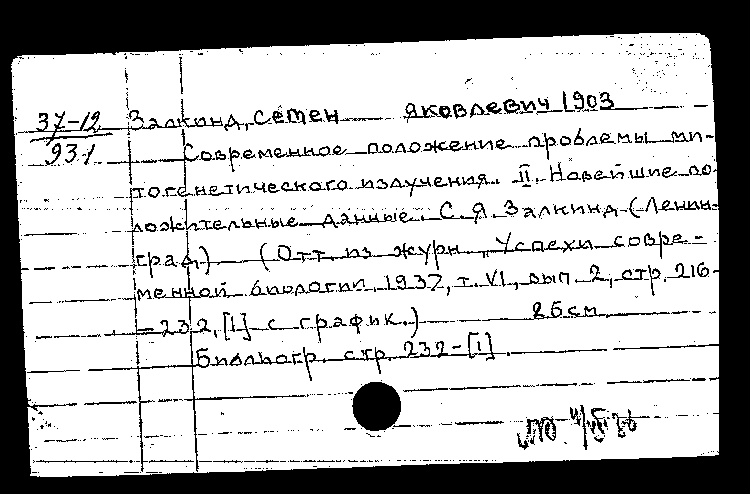 37-12 Залкинд, Семен Яковлевич 1903
931 Современное положение проблемы ми-
тогенетического излучения. II. Новейшие по
ложительные данные. С. Я. Залкинд (Ленин-
град) (Отт. из журн. „Успехи совре-
менной биологии 1937, т. VI, вып. 2, стр. 216-
-232, [1] с график.) 26см
Библьогр. стр. 232-[1].